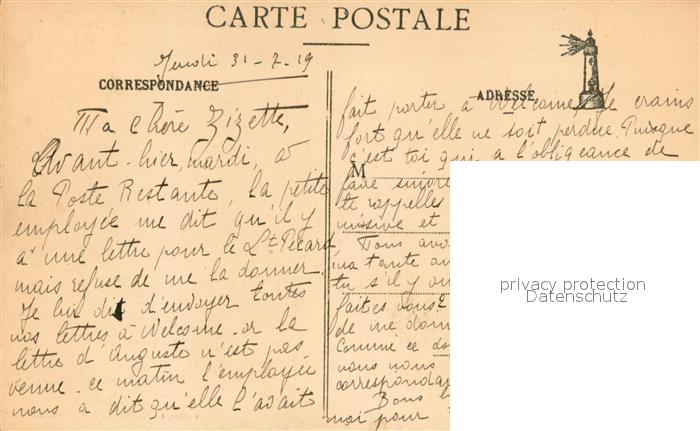 CARTE POSTALE
Jeudi 31-7-19
CORRESPONDANCE
Ma chère Zizette,
Avant-hier, mardi, à
la Poste Restante, la petite
employée me dit qu'il y
a une lettre pour le Lt Picard
mais refuse de me la donner.
Je lui dit d'envoyer toutes
nos lettres à Welcome. or la
lettre d'Auguste n'est pas
venue. ce matin l'employée
nous a dit qu'elle l'avait
ADRESSE
fait porter à Welcome. Je crains
fort qu'elle ne soit perdue. Puisque
c'est toi qui a l'obligeance de
M
faire suivre
te rappelles
missive et
Nous avo
ma tante au
tu s'il y
faites vous?
de me donn
Comme ce do
vous nous
correspondan
Bons b
moi pour
privacy protection
Datenschutz